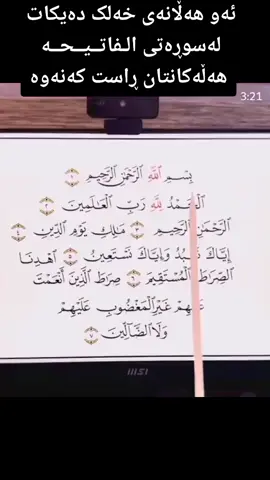 ئەو هەڵانەی خەلک دەیکات
لەسورەتی الـفـاتـیـحـە
هەڵەکانتان ڕاست کەنەوە
3:21
بِسْمِ اللَّهِ الرَّحْمَٰنِ الرَّحِيمِ ١
الْحَمْدُ لِلَّهِ رَبِّ الْعَالَمِينَ ٢
الرَّحْمَٰنِ الرَّحِيمِ ٣ مَالِكِ يَوْمِ الدِّينِ ٤
إِيَّاكَ نَعْبُدُ وَإِيَّاكَ نَسْتَعِينُ ٥ اهْدِنَا
الصِّرَاطَ الْمُسْتَقِيمَ ٦ صِرَاطَ الَّذِينَ أَنْعَمْتَ
عَلَيْهِمْ غَيْرِ الْمَغْضُوبِ عَلَيْهِمْ
وَلَا الضَّالِّينَ ٧
msi